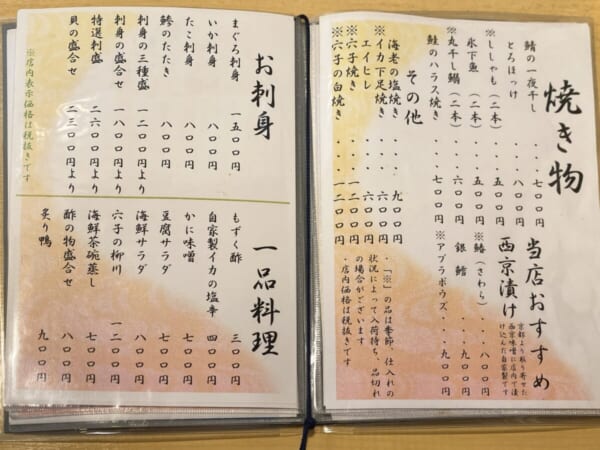 焼き物
鯖の一夜干し・・・七〇〇円
とろほっけ・・・八〇〇円
※ししゃも（二本）・・・五〇〇円
氷下魚（二本）・・・五〇〇円
※丸干し鰯（二本）・・・六〇〇円
鮭のハラス焼き・・・七〇〇円
その他
海老の塩焼き・・・九〇〇円
※イカ下足焼き・・・六〇〇円
エイヒレ・・・六〇〇円
※六子焼き・・・一二〇〇円
※六子の白焼き・・・一二〇〇円
当店おすすめ
西京漬け
京都より取り寄せた
西京味噌に店内で漬
け込んだ自家製です
※鰆（さわら）・・八〇〇円
銀鱈・・・九〇〇円
※アブラボウズ・・九〇〇円
・「※」の品は季節、仕入れの
状況によって入荷待ち、品切れ
の場合がございます
・店内価格は税抜きです
お刺身
まぐろ刺身 一五〇〇円
いか刺身 八〇〇円
たこ刺身 八〇〇円
鯵のたたき 八〇〇円
刺身の三種盛 一二〇〇円より
刺身の盛合せ 一八〇〇円より
特選刺盛 二六〇〇円より
貝の盛合せ 二三〇〇円より
※店内表示価格は税抜きです
一品料理
もずく酢 三〇〇円
自家製イカの塩辛 四〇〇円
かに味噌 七〇〇円
豆腐サラダ 七〇〇円
海鮮サラダ 八〇〇円
六子の柳川 一二〇〇円
海鮮茶碗蒸し 七〇〇円
酢の物盛合せ 八〇〇円
炙り鴨 九〇〇円